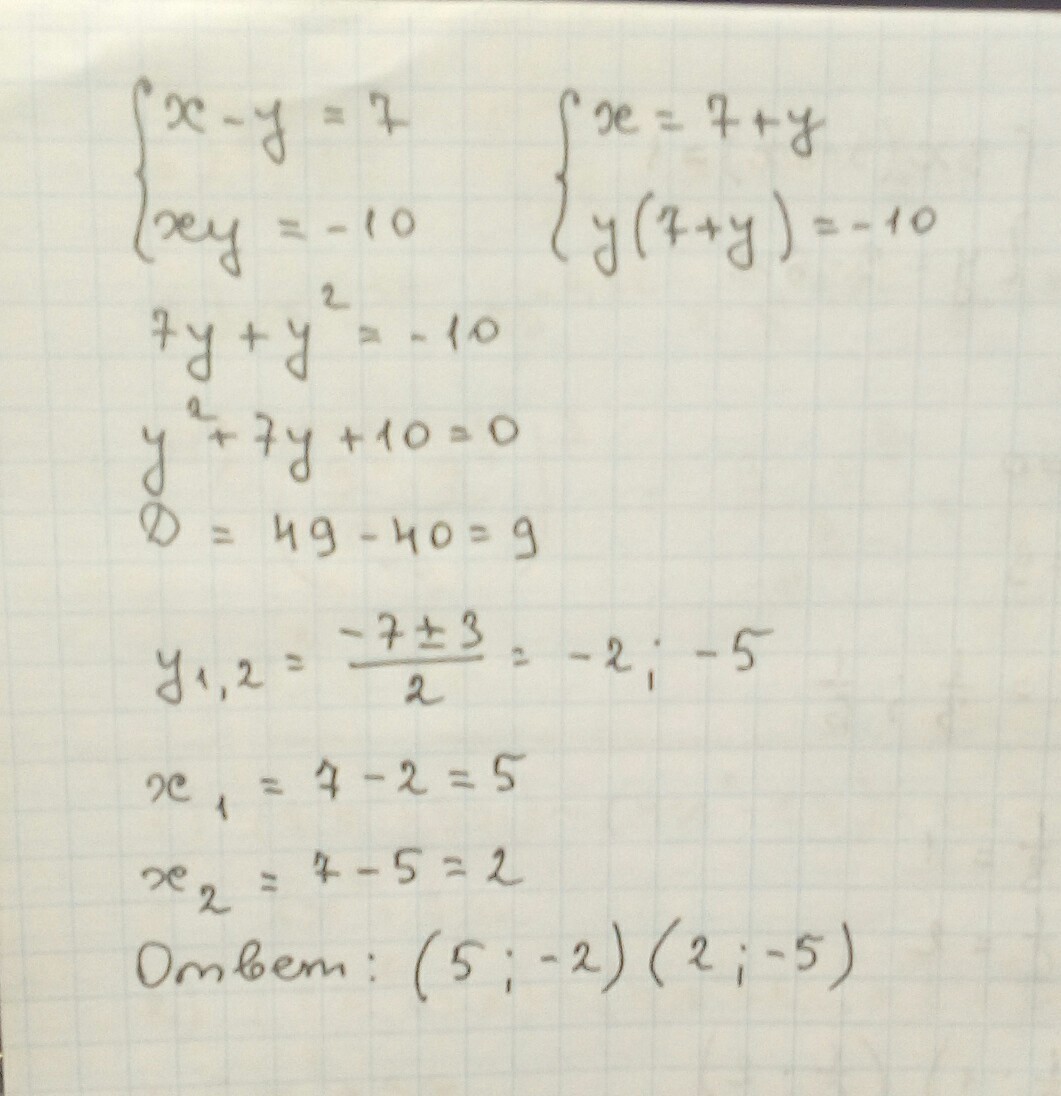 {x - y = 7 {x = 7 + y
{xy = -10 {y(7+y) = -10
7y + y² = -10
y² + 7y + 10 = 0
D = 49 - 40 = 9
y₁,₂ = (-7 ± 3)/2 = -2; -5
x₁ = 7 - 2 = 5
x₂ = 7 - 5 = 2
Ответ: (5; -2) (2; -5)